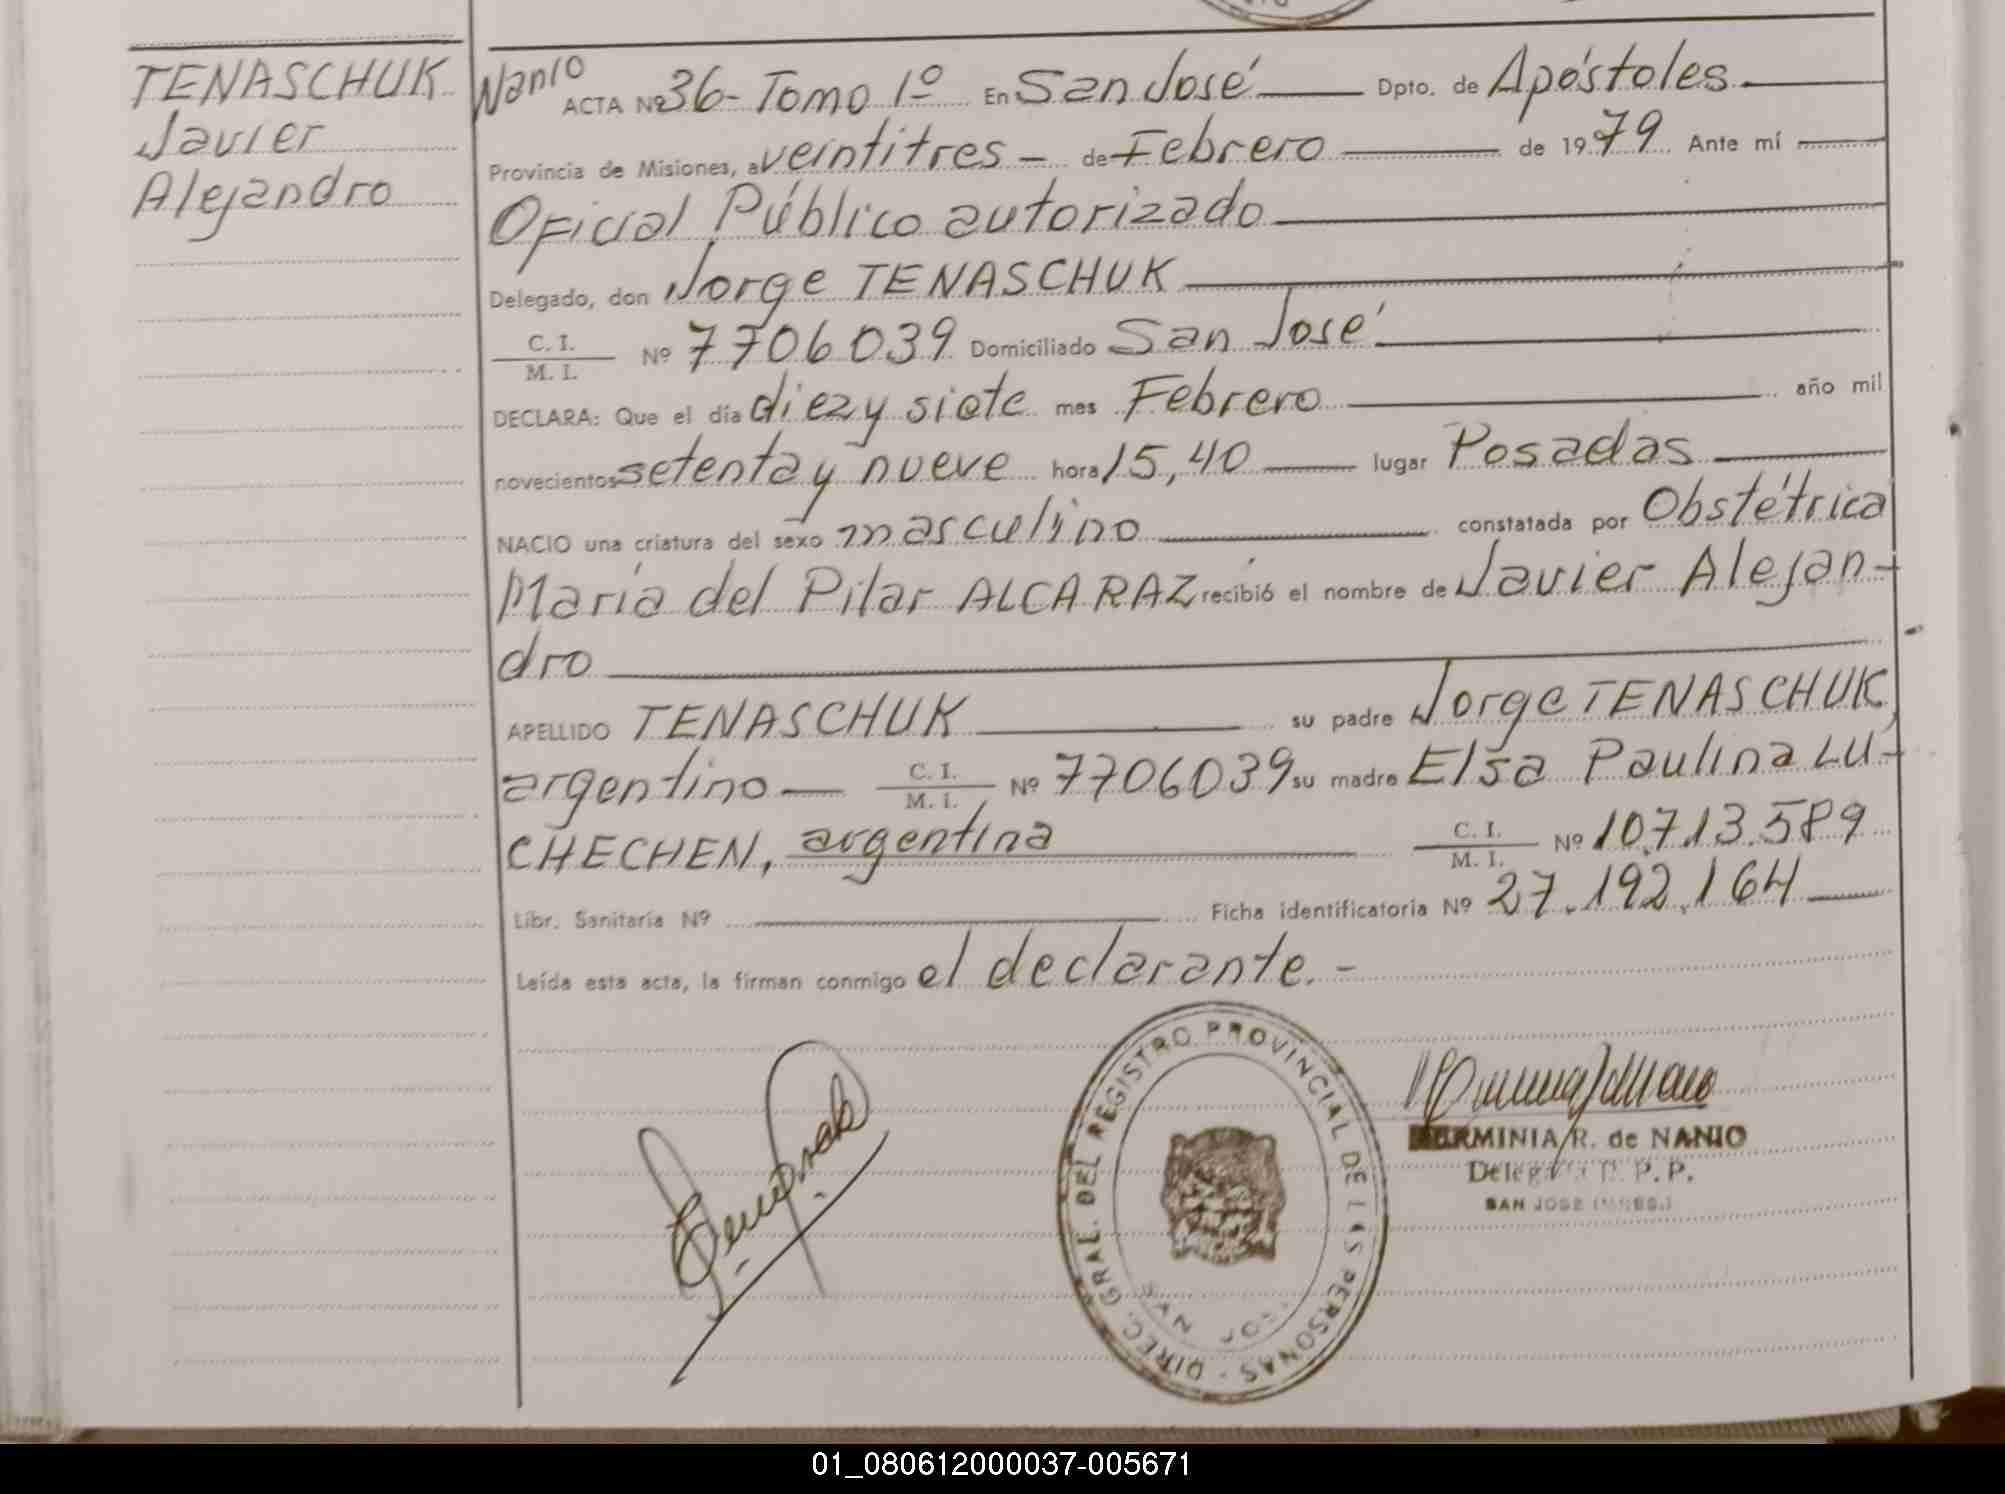 TENASCHUK
Javier
Alejandro
Nanio
ACTA Nº 36- Tomo 1º En San José Dpto. de Apóstoles
Provincia de Misiones, a veintitres - de Febrero de 1979 Ante mí
Oficial Público autorizado
Delegado, don Jorge TENASCHUK
C. I.
M. I. Nº 7706039 Domiciliado San José
DECLARA: Que el día diez y siete mes Febrero año mil
novecientos setenta y nueve hora 15,40 lugar Posadas
NACIO una criatura del sexo masculino constatada por Obstétrica
María del Pilar ALCARAZ recibió el nombre de Javier Alejan-
dro
APELLIDO TENASCHUK su padre Jorge TENASCHUK,
argentino C. I. M. I. Nº 7706039 su madre Elsa Paulina LU-
CHECHEN, argentina C. I. M. I. Nº 10.713.589
Libr. Sanitaria Nº Ficha identificatoria Nº 27.192.164
Leída esta acta, la firman conmigo el declarante.-
DIREC. GRAL. DEL REGISTRO PROVINCIAL DE LAS PERSONAS
SAN JOSE
HERMINIA R. de NANIO
Delegada R. P. P.
SAN JOSE (MNES.)
01_080612000037-005671